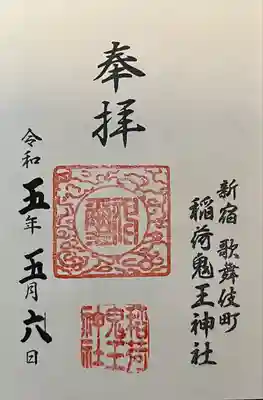 新宿 歌舞伎町
稲荷鬼王神社
奉拝
令和五年五月六日
稲荷
鬼王
神社